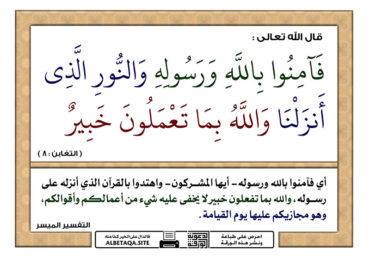 قال الله تعالى :
فَآمِنُوا بِاللَّهِ وَرَسُولِهِ وَالنُّورِ الَّذِى
أَنزَلْنَا وَاللَّهُ بِمَا تَعْمَلُونَ خَبِيرٌ
( التغابن : ٨ )
أي فآمنوا بالله ورسوله - أيها المشركون - واهتدوا بالقرآن الذي أنزله على
رسوله، والله بما تفعلون خبير لا يخفى عليه شيء من أعمالكم وأقوالكم،
وهو مجازيكم عليها يوم القيامة .
التفسير الميسر
احرص على طباعة
ونشر هذه الورقة
فالدال على الخير كفاعله
ALBETAQA.SITE